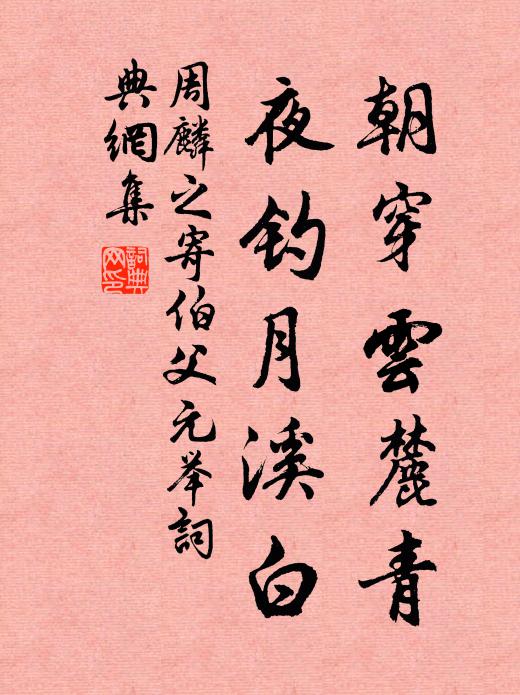 朝穿雲麓青
夜钓月溪白
周麟之寄伯父元举詞
典網集
詞典
网印